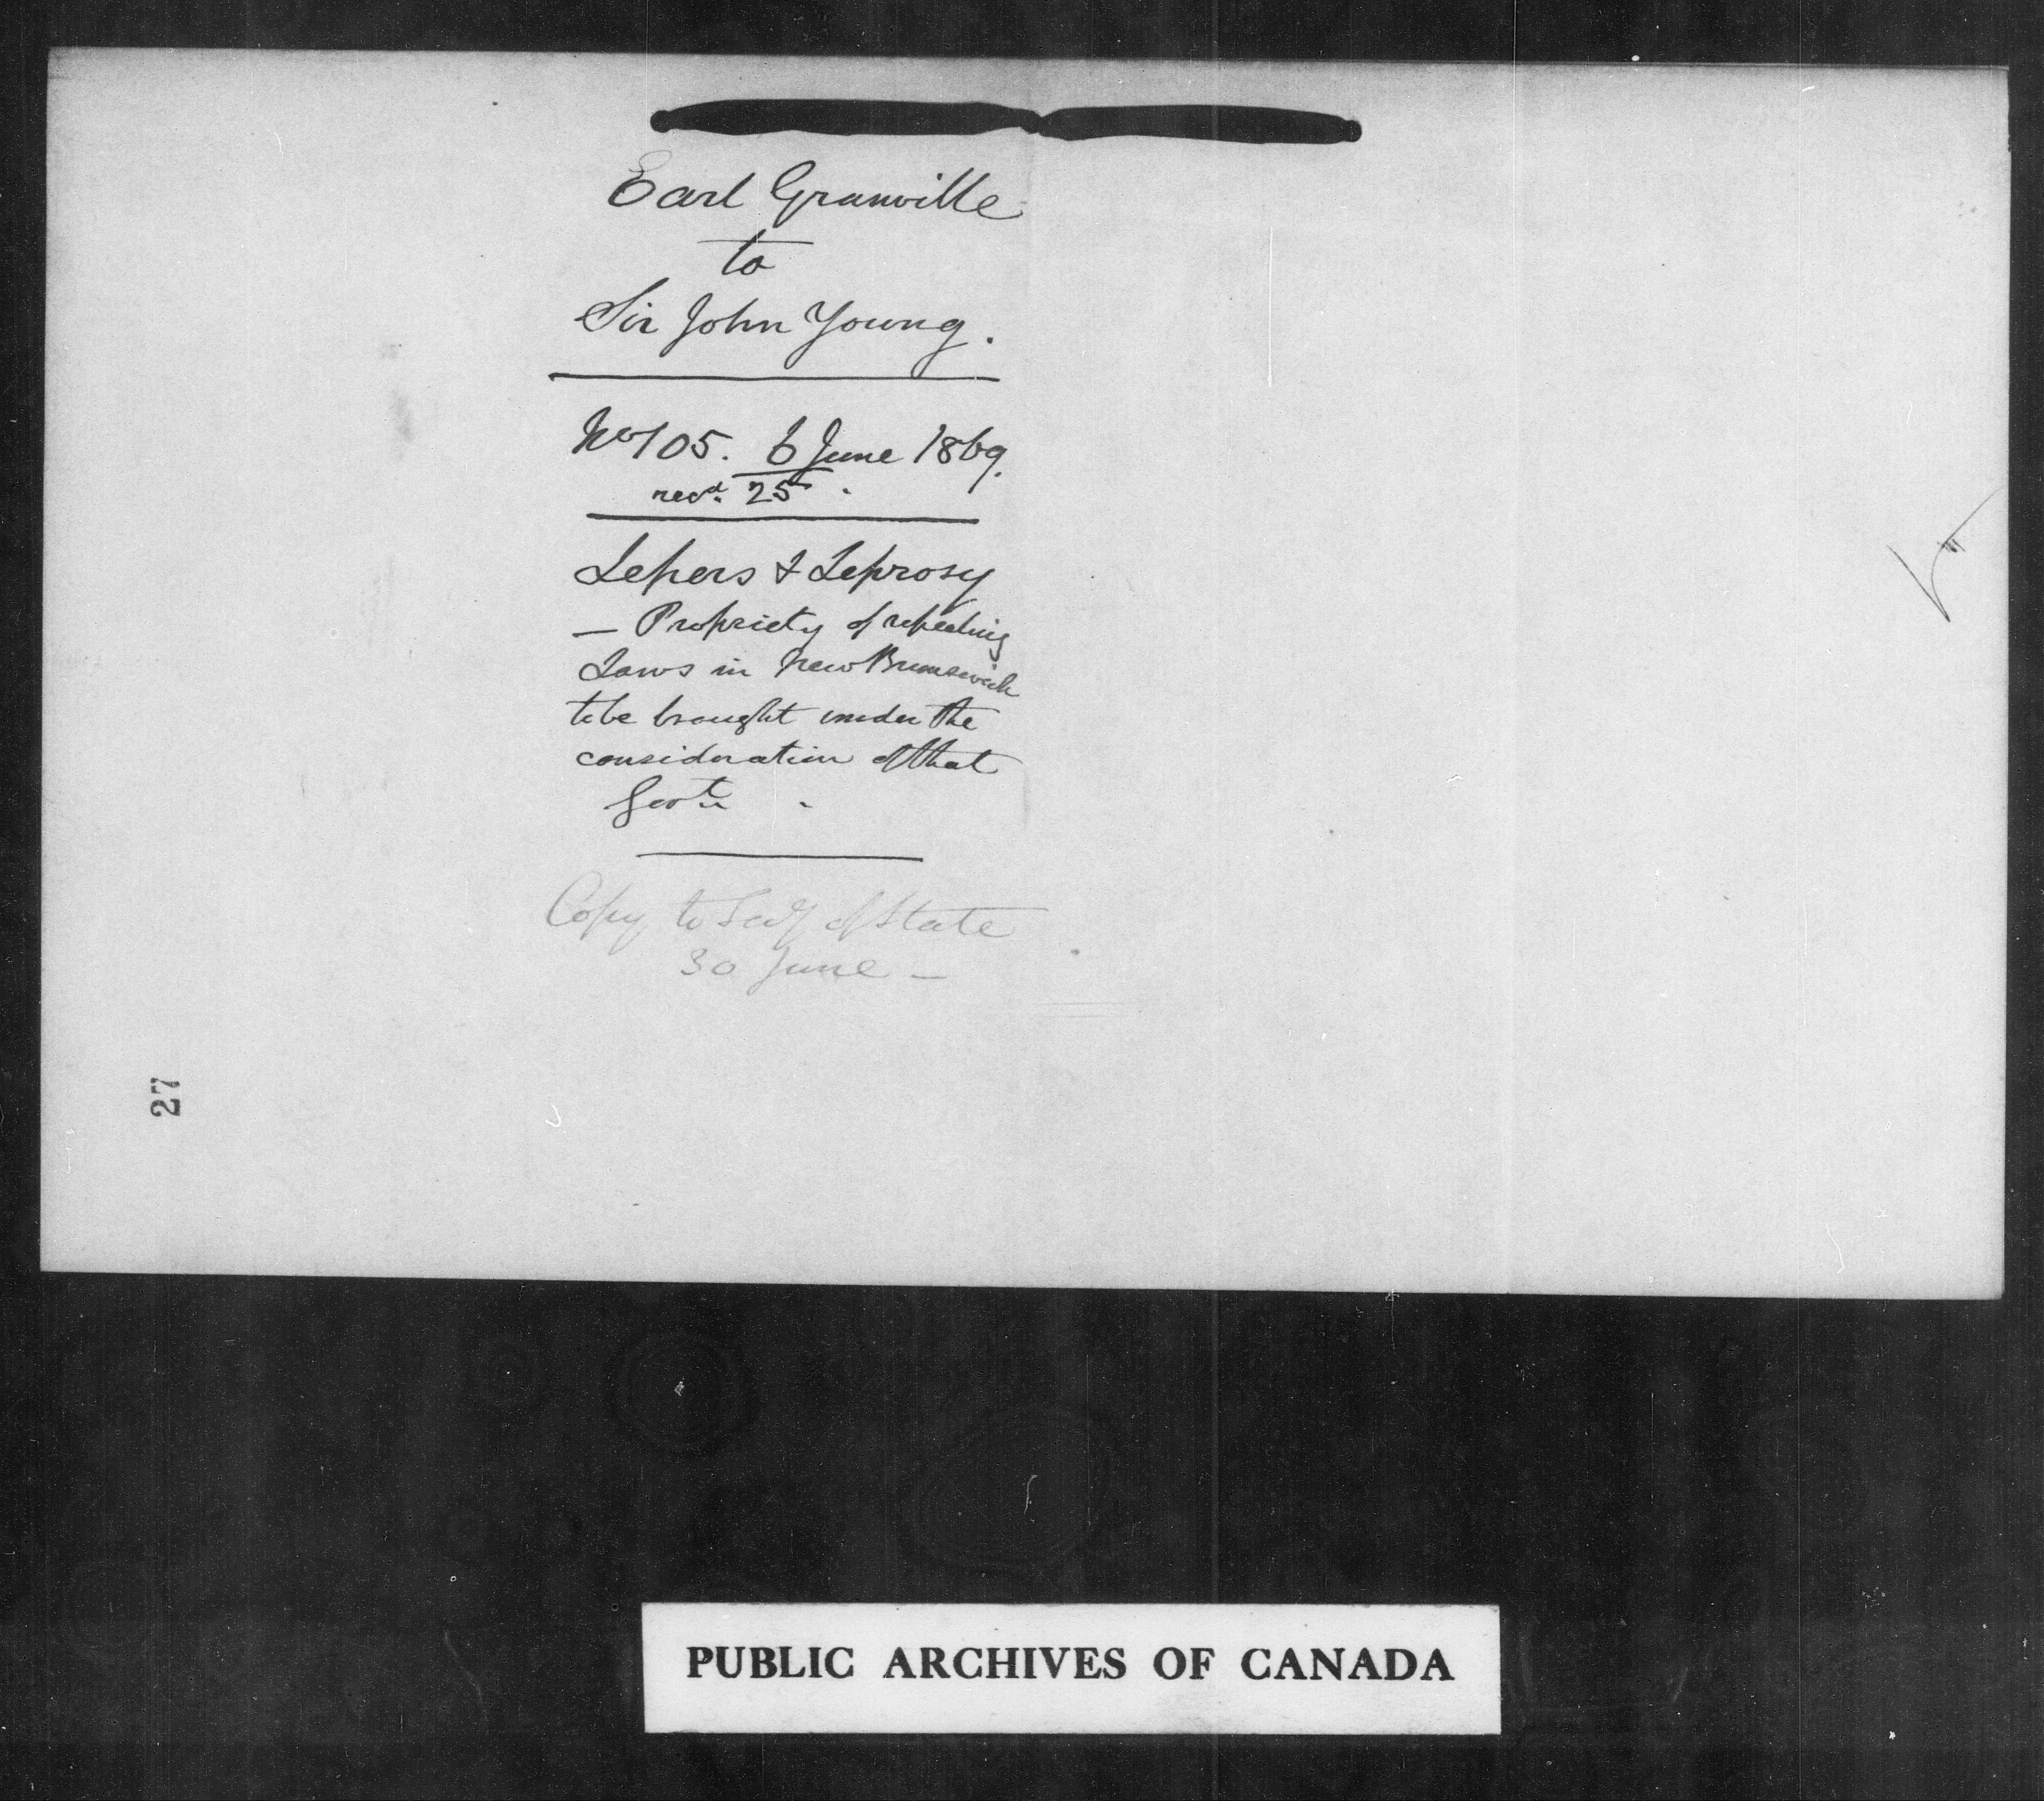 Earl Granville
to
Sir John Young.
No 105. 6 June 1869.
recd. 25.
Lepers & Leprosy
— Propriety of repealing
Laws in New Brunswick
to be brought under the
consideration of that
Govt.
Copy to Secy of State
30 June —
27
PUBLIC ARCHIVES OF CANADA